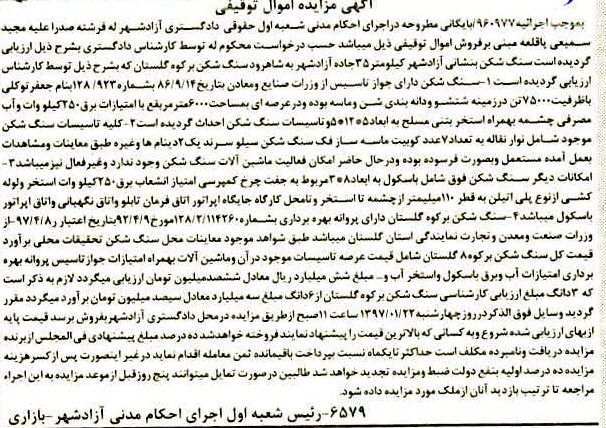 آگهی مزایده اموال توقیفی
بموجب اجرائیه ۹۶۰۹۷۷/بایگانی مطروحه دراجرای احکام مدنی شعبه اول حقوقی دادگستری آزادشهر له فرشته صدرا علیه مجید
سمیعی پاقلعه مبنی برفروش اموال توقیفی ذیل میباشد حسب درخواست محکوم له توسط کارشناس دادگستری بشرح ذیل ارزیابی
گردیده است سنگ شکن بنشانی آزادشهر کیلومتر۳۵جاده آزادشهر به شاهرود سنگ شکن برکوه گلستان که بشرح ذیل توسط کارشناس
ارزیابی گردیده است ۱-سنگ شکن دارای جواز تاسیس از وزرات صنایع ومعادن بتاریخ۸۶/۹/۱۴ بشماره ۱۲۸/۹۲۳ بنام جعفر توکلی
باظرفیت۷۵۰۰۰تن درزمینه شتشو ودانه بندی شن وماسه بوده ودرعرصه ای بمساحت۶۰۰۰مترمربع با امتیازات برق۲۵۰کیلو وات وآب
مصرفی چشمه بهمراه استخر بتنی مسلح به ابعاد۵*۱۲*۵وتاسیسات سنگ شکن احداث گردیده است۲-کلیه تاسیسات سنگ شکن
موجود شامل نوار نقاله به تعداد۷عدد کوبیت ماسه ساز فک سنگ شکن سیلو سرند یک۲دینام ها وغیره طبق معاینات ومشاهدات
بعمل آمده مستعمل وبصورت فرسوده بوده ودرحال حاضر امکان فعالیت ماشین آلات سنگ شکن وجود ندارد وغیرفعال نیزمیباشد۳-
امکانات دیگر سنگ شکن فوق شامل باسکول به ابعاد۸*۳مربوط به جفت چرخ کمپرسی امتیاز انشعاب برق۲۵۰کیلو وات استخر ولوله
کشی ازنوع پلی اتیلن به قطر ۱۱۰میلیمتر ازچشمه تا استخر و تامحل کارگاه جایگاه اپراتور اتاق فرمان تابلو واتاق نگهبانی واتاق اپراتور
باسکول میباشد۴-سنگ شکن برکوه گلستان دارای پروانه بهره برداری بشماره۱۲۸/۲/۱۱۴۲۶۰مورخ۹۲/۴/۹بتاریخ اعتبار ۹۷/۴/۸-از
وزرات صنعت ومعدن وتجارت نمایندگی استان گلستان میباشد طبق شواهد موجود معاینات محل سنگ شکن تحقیقات محلی برآورد
قیمت کل سنگ شکن برکوه۸ گلستان شامل قیمت عرصه تاسیسات موجود در آن وماشین آلات بهمراه امتیازات جواز تاسیس پروانه بهره
برداری امتیازات آب وبرق باسکول واستخر آب و.. مبلغ شش میلیارد ریال معادل ششصدمیلیون تومان ارزیابی میگردد لازم به ذکر است
که ۳دانگ مبلغ ارزیابی کارشناسی سنگ شکن برکوه گلستان از۶دانگ مبلغ سه میلیارد معادل سیصد میلیون تومان برآورد میگردد مقرر
گردید وسایل فوق الذکر درروز چهارشنبه۱۳۹۷/۰۱/۲۲ ساعت ۱۱صبح ازطریق مزایده درمحل دادگستری آزادشهر بفروش برسد قیمت پایه
ازبهای ارزیابی شده شروع وبه کسانی که بالاترین قیمت را پیشنهادنمایند فروخته خواهدشد ده درصد مبلغ پیشنهادی فی المجلس ازبرنده
مزایده دریافت ونامبرده مکلف است حداکثر تایکماه نسبت بپرداخت باقیمانده ثمن معامله اقدام نماید درغیر اینصورت پس ازکسر هزینه
مزایده ده درصد اولیه بنفع دولت ضبط ومزایده تجدید خواهد شد طالبین درصورت تمایل میتوانند پنج روزقبل ازموعد مزایده به این اجراء
مراجعه تا ترتیب بازدید آنان ازملک مورد مزایده داده شود.
۶۵۷۹-رئیس شعبه اول اجرای احکام مدنی آزادشهر-بازاری